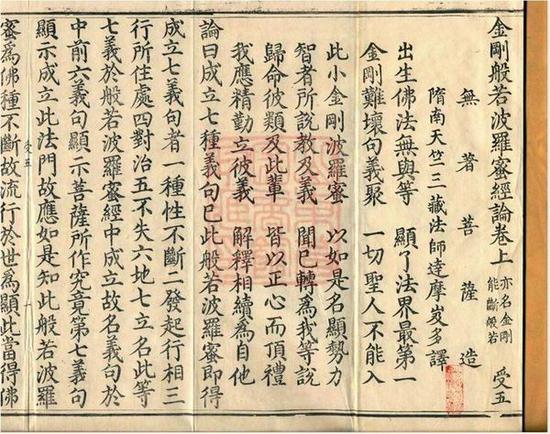 金剛般若波羅蜜經論卷上 亦名金剛能斷般若 受五
無著菩薩造
隋南天竺三藏法師達摩笈多譯
出生佛法無與等 顯了法界最第一
金剛難壞句義聚 一切聖人不能入
此小金剛波羅蜜 以如是名顯勢力
智者所說教及義 聞已轉為我等說
歸命彼類及此輩 皆以正心而頂禮
我應精勤立彼義 解釋相續為自他
論曰成立七種義句已此般若波羅蜜即得
成立七義句者一種性不斷二發起行相三
行所住處四對治五不失六地七立名此等
七義於般若波羅蜜經中成立故名義句於
中前六義句顯示菩薩所作究竟第七義句
顯示成立此法門故應如是知此般若波羅
蜜為佛種不斷故流行於世為顯此當得佛